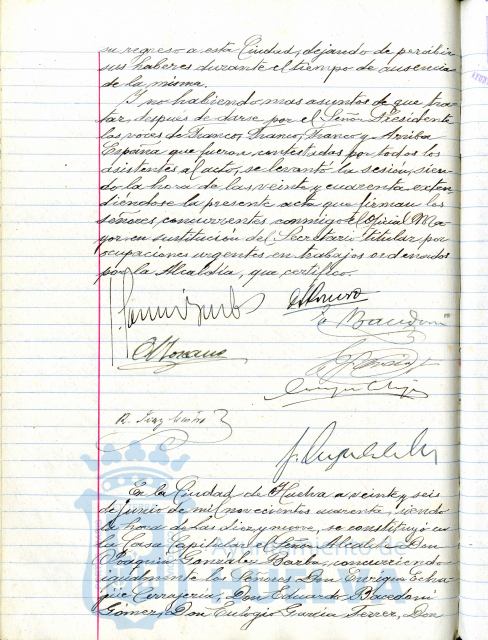 su regreso a esta Ciudad, dejando de percibir
sus haberes durante el tiempo de ausencia
de la misma.
Y no habiendo mas asuntos de que tra-
tar, despues de darse por el Señor Presidente
las voces de Franco, Franco, Franco y Arriba
España que fueron contestadas por todos los
asistentes al acto, se levantó la sesión, sien-
do la hora de las veinte y cuarenta exten
diéndose la presente acta que firman los
señores, concurrentes, conmigo el Oficial Ma-
yor en sustitución del Secretario titular, por
ocupaciones urgentes en trabajos ordenados
por la Alcaldía, que certifico.
En la Ciudad de Huelva a veinte y seis
de junio de mil novecientos cuarenta, siendo
la hora de las diez y nueve, se constituyó en
la Casa Capitular el Señor Alcalde Don
Joaquín González Barba, concurriendo
igualmente los Señores Don Enrique Echa-
güe Cerrajería, Don Eduardo
Gómez, Don Eulogio García Ferrer, Don
Ayuntamiento de